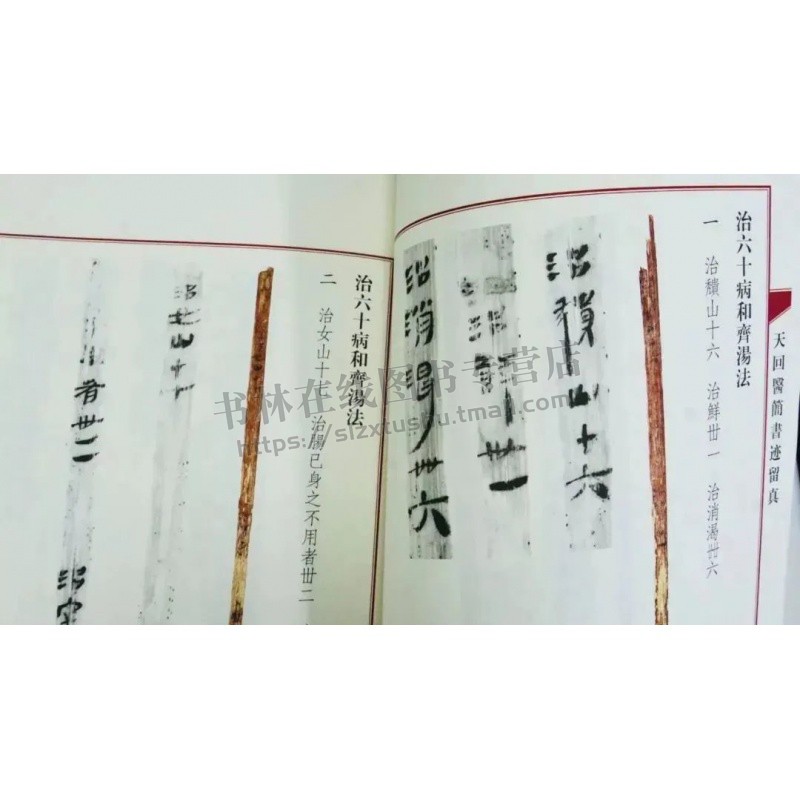 治六十病和齊湯法
一 治穨山十六 治鮮丗一 治消渴丗六
天回醫簡書迹留真
治穨山十六
治鮮丗一
治消渴丗六
治六十病和齊湯法
二 治女山十二 治腸已身之不用者丗二
治女山十
用者丗二
治
书林在线图书专营店
https://slzxtushu.tmall.com